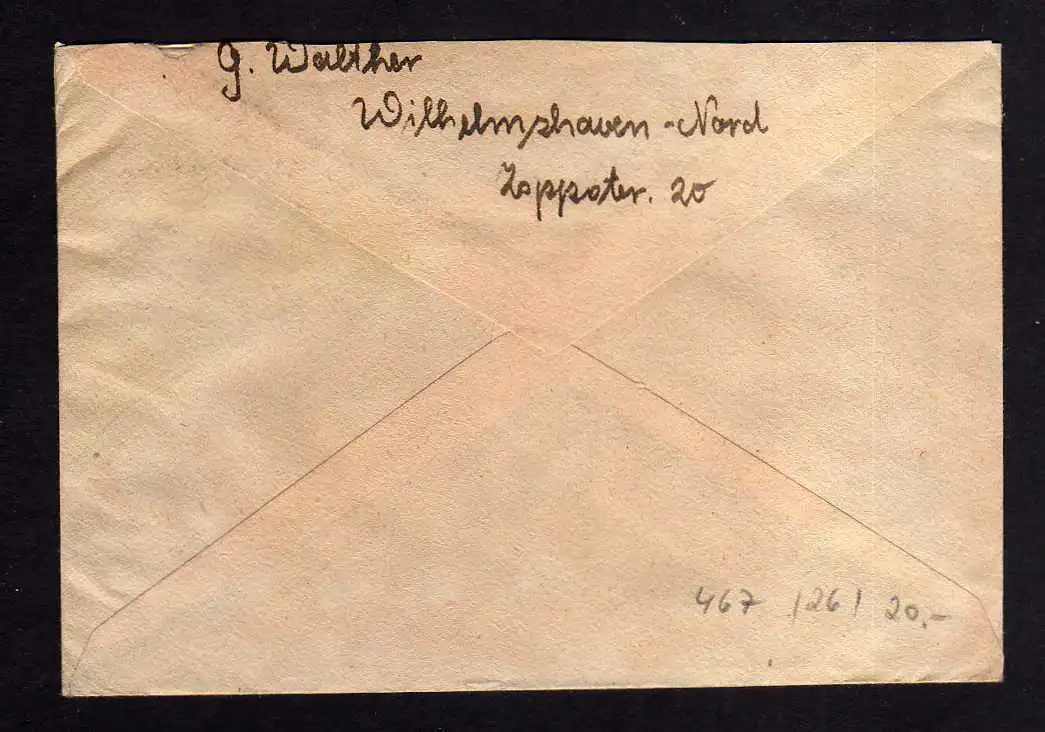 G. Walther
Wilhelmshaven-Nord
Zoppoter. 20
467 /26/ 20,-